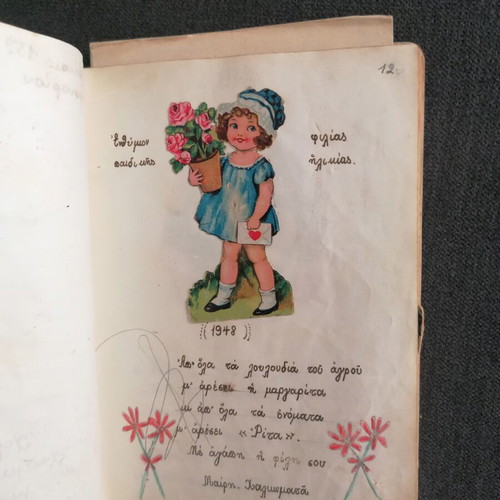 12
Ἐνθύμιον φιλίας
παιδικῆς ἡλικίας.
(1948)
Ἀπ' ὅλα τά λουλουδιά τοῦ ἀγροῦ
μ' ἀρέσει ἡ μαργαρίτα
κι ἀπ' ὅλα τά ὀνόματα
μ' ἀρέσει «Ρίτα».
Μέ ἀγάπη ἡ φίλη σου
Μαίρη